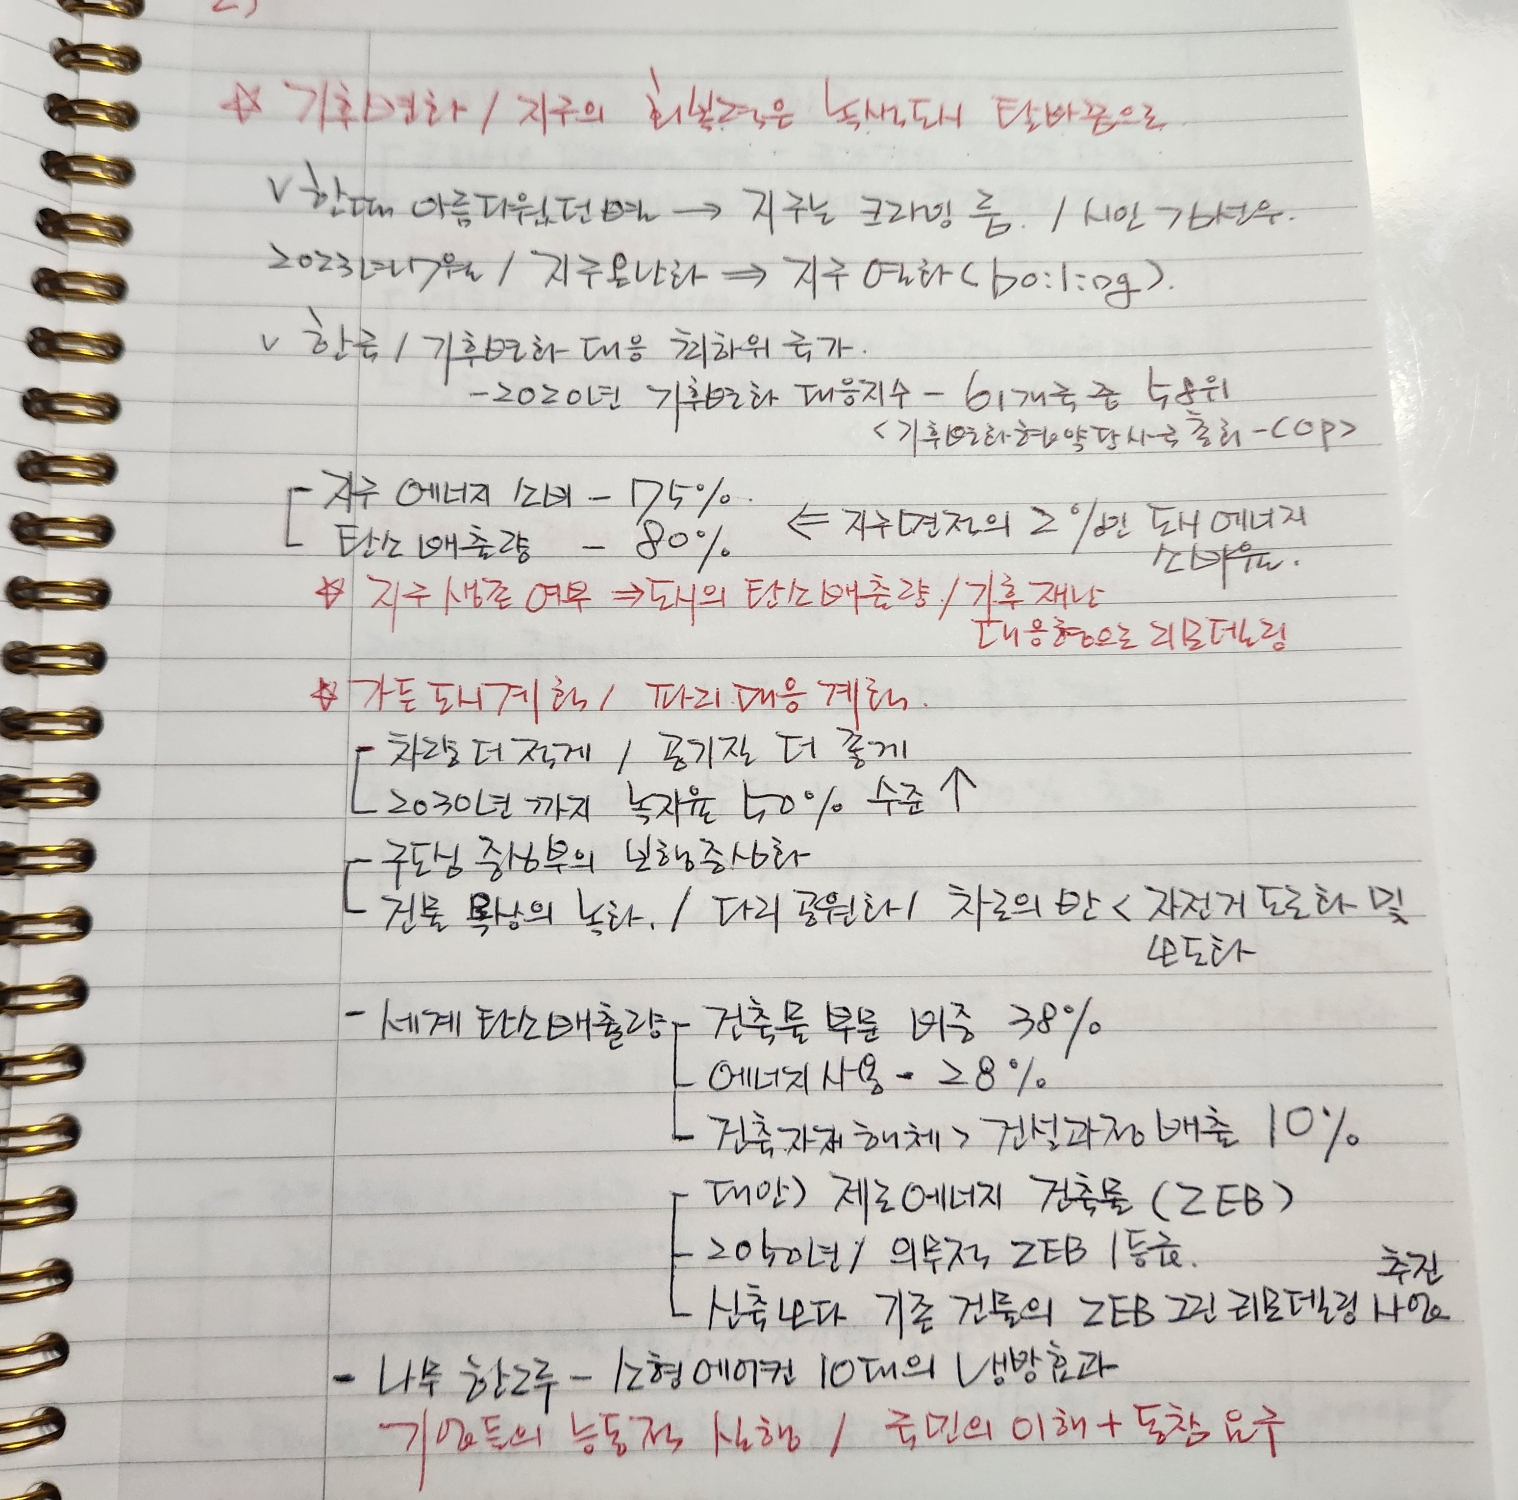 2)
☆ 기후변화 / 지구의 회복력은 녹색도시 탈바꿈으로
v 한때 아름다웠던 별 → 지구는 크라잉 룸. / 시인 김선우.
2023년 7월 / 지구온난화 ⇒ 지구 열화(boiling).
v 한국 / 기후변화 대응 최하위 국가.
- 2020년 기후변화 대응지수 - 61개국 중 58위
<기후변화협약당사국총회-COP>
- 지구 에너지 소비 - 75%.
탄소배출량 - 80% ⇐ 지구면적의 2%인 도시에너지
소비율.
☆ 지구 생존 여부 ⇒ 도시의 탄소배출량 / 기후재난
대응형으로 리모델링
☆ 가든 도시계획 / 파리 대응 계획.
- 차량 더 적게 / 공기질 더 좋게
- 2030년까지 녹지율 50% 수준 ↑
- 구도심 중심부의 보행중심화
- 건물 옥상의 녹화. / 다리 공원화 / 차로의 반 < 자전거 도로화 및
보도화
- 세계 탄소배출량 - 건축물 부문 비중 38%
- 에너지 사용 - 28%
- 건축자재 해체 > 건설과정 배출 10%
- 대안) 제로에너지 건축물 (ZEB)
- 2050년 / 의무적 ZEB 1등급.
추진
- 신축보다 기존 건물의 ZEB 그린 리모델링 사업
- 나무 한그루 - 소형에어컨 10대의 냉방효과
기업들의 능동적 실행 / 국민의 이해 + 동참 요구